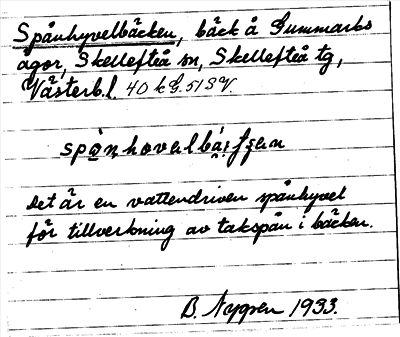 Spånhyvelbäcken, bäck å Gummarks
ägor, Skellefteå sn, Skellefteå tg,
Västerb.l. 40 k G. 51 SV.
Det är en vattendriven spånhyvel
för tillverkning av takspån i bäcken.
B. Nygren 1933.